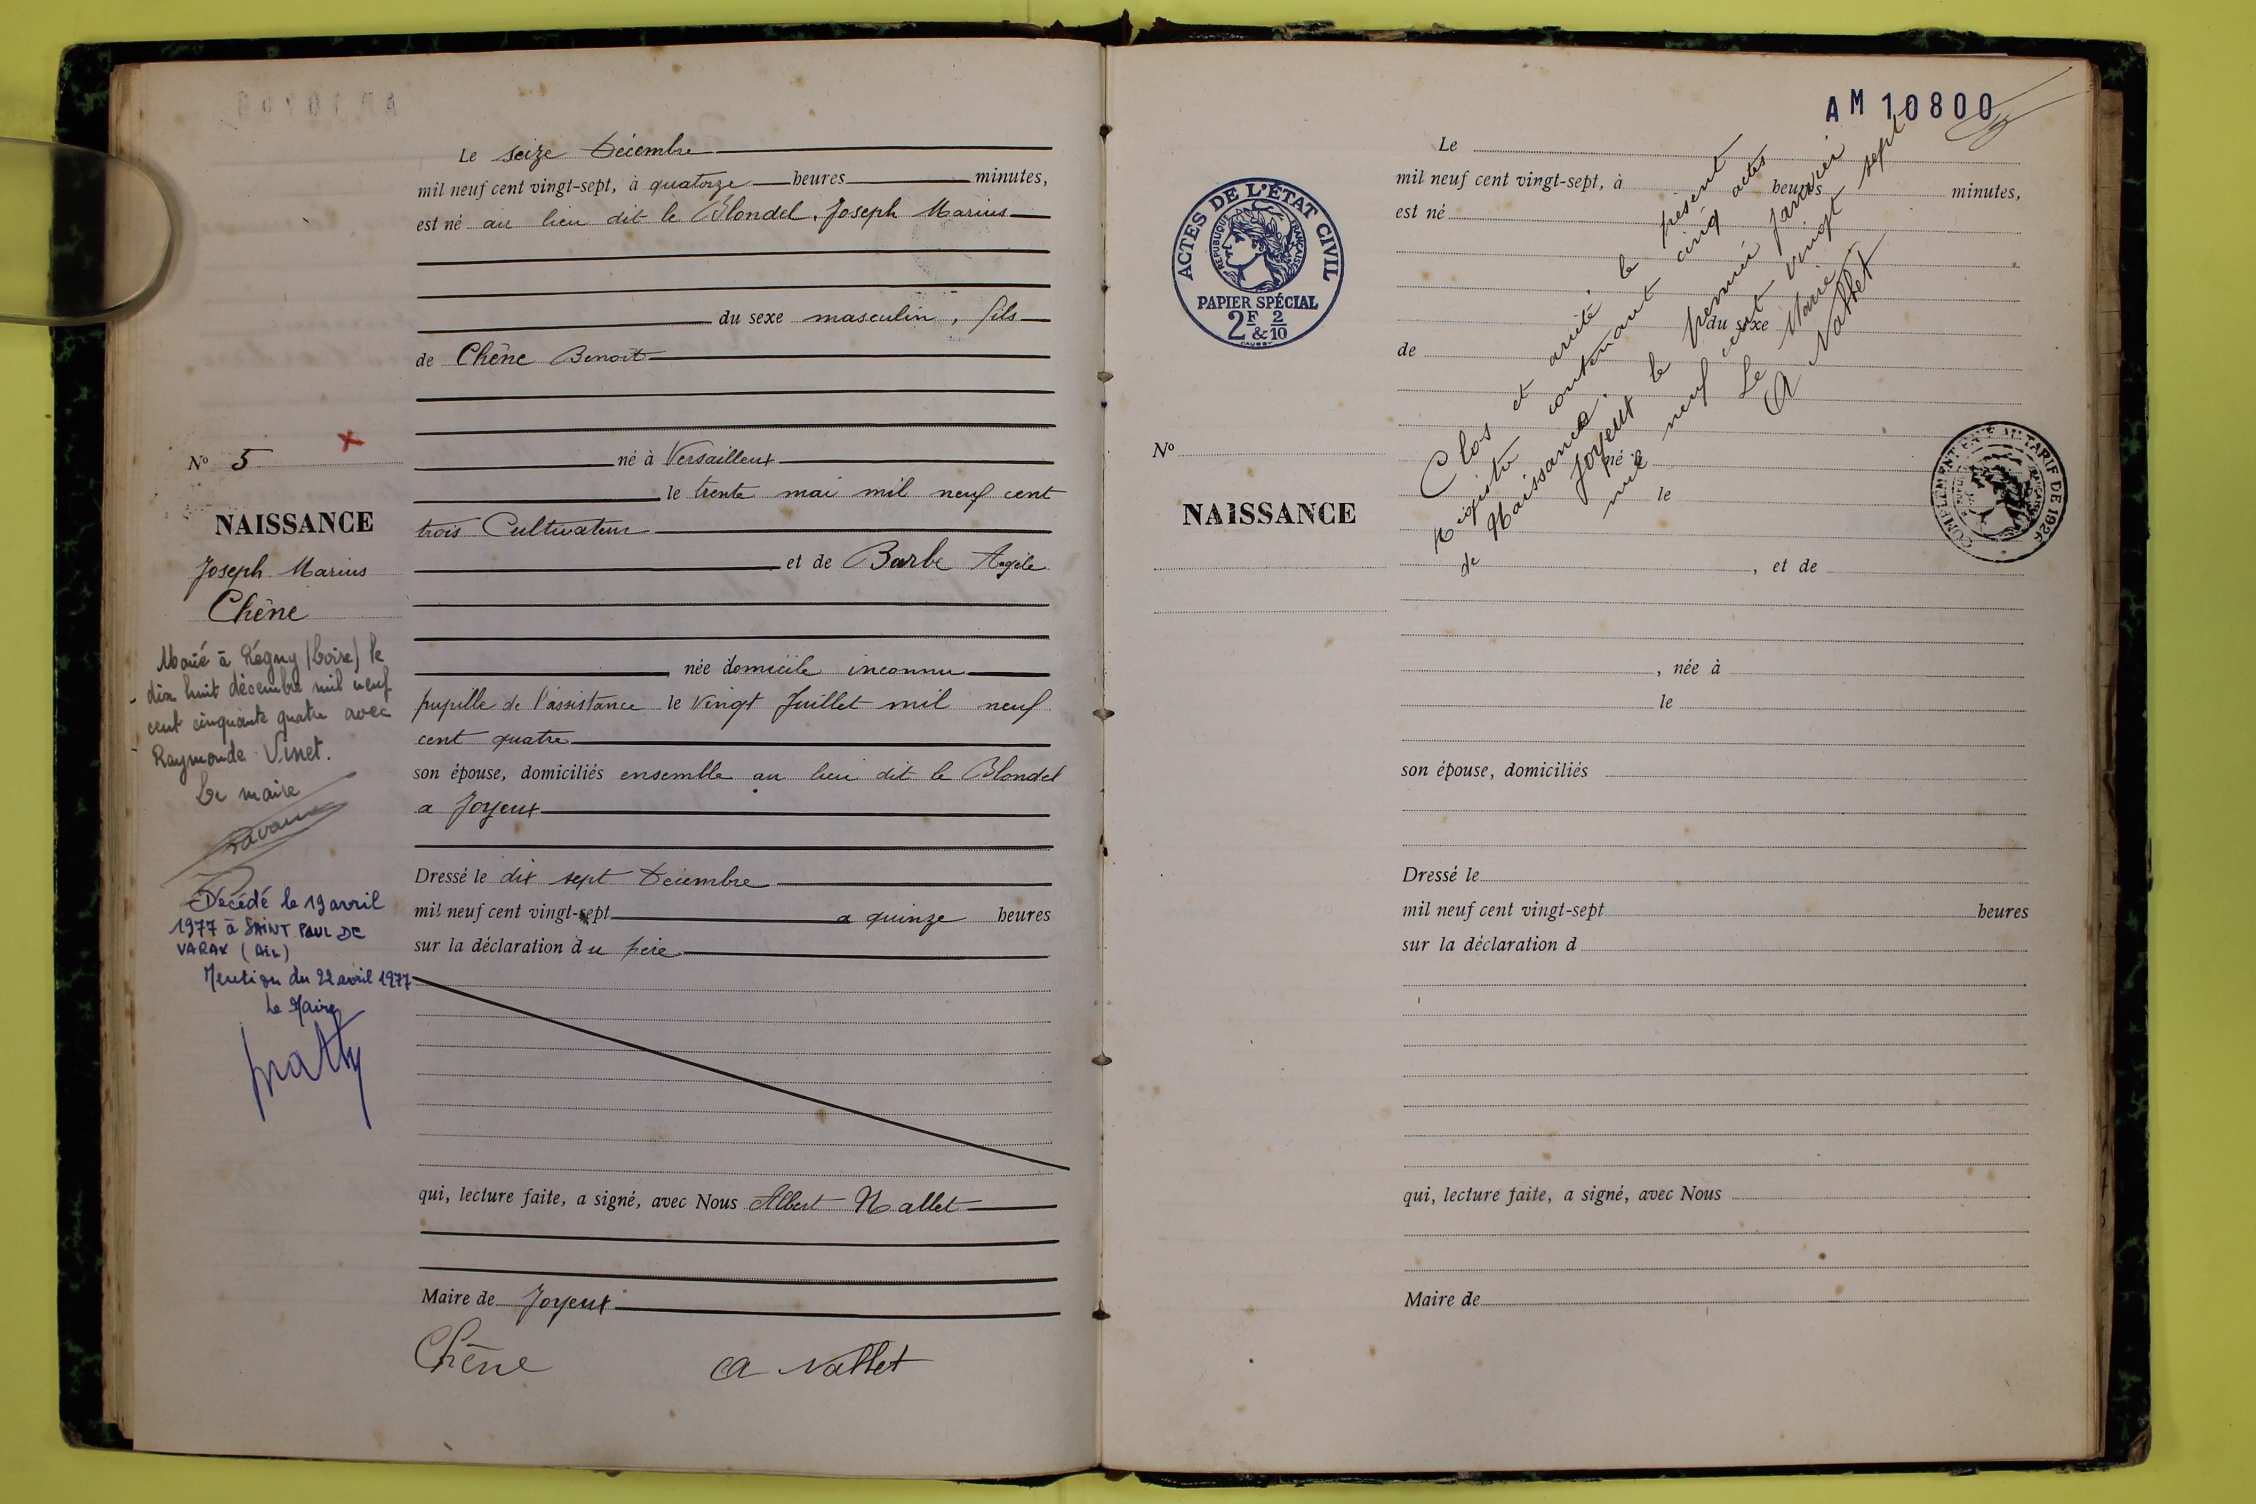 Le seize Décembre
mil neuf cent vingt-sept, à quatorze heures minutes,
est né au lieu dit le Blondel, Joseph Marius
du sexe masculin, fils
de Chêne Benoit
né à Versailleux
le trente mai mil neuf cent
trois Cultivateur
et de Barbe Angèle
née domicile inconnu
pupille de l'assistance le vingt Juillet mil neuf
cent quatre
son épouse, domiciliés ensemble au lieu dit le Blondel
a Joyeux
Dressé le dix sept Décembre
mil neuf cent vingt-sept a quinze heures
sur la déclaration du père
qui, lecture faite, a signé, avec Nous Albert Nallet
Maire de Joyeux
Chêne A Nallet
No 5
NAISSANCE
Joseph Marius
Chêne
Marié à Régny (Loire) le
dix huit décembre mil neuf
cent cinquante quatre avec
Raymonde Vinet.
Le maire
Décédé le 19 avril
1977 à SAINT PAUL DE
VARAX (Ain)
Mention du 22 avril 1977
Le Maire
AM 10800
ACTES DE L'ÉTAT CIVIL
RÉPUBLIQUE FRANÇAISE
PAPIER SPÉCIAL
2F & 2/10
Le
mil neuf cent vingt-sept, à heures minutes,
est né
du sexe
de
No
né à
NAISSANCE
le
, et de
, née à
le
son épouse, domiciliés
Dressé le
mil neuf cent vingt-sept heures
sur la déclaration d
qui, lecture faite, a signé, avec Nous
Maire de
Clos et arrêté le présent
Registre contenant cinq actes
de Naissance.
Joyeux le premier Janvier
mil neuf cent vingt sept
Le Maire
A Nallet
COMPLÉMENT TARIF DE 1926